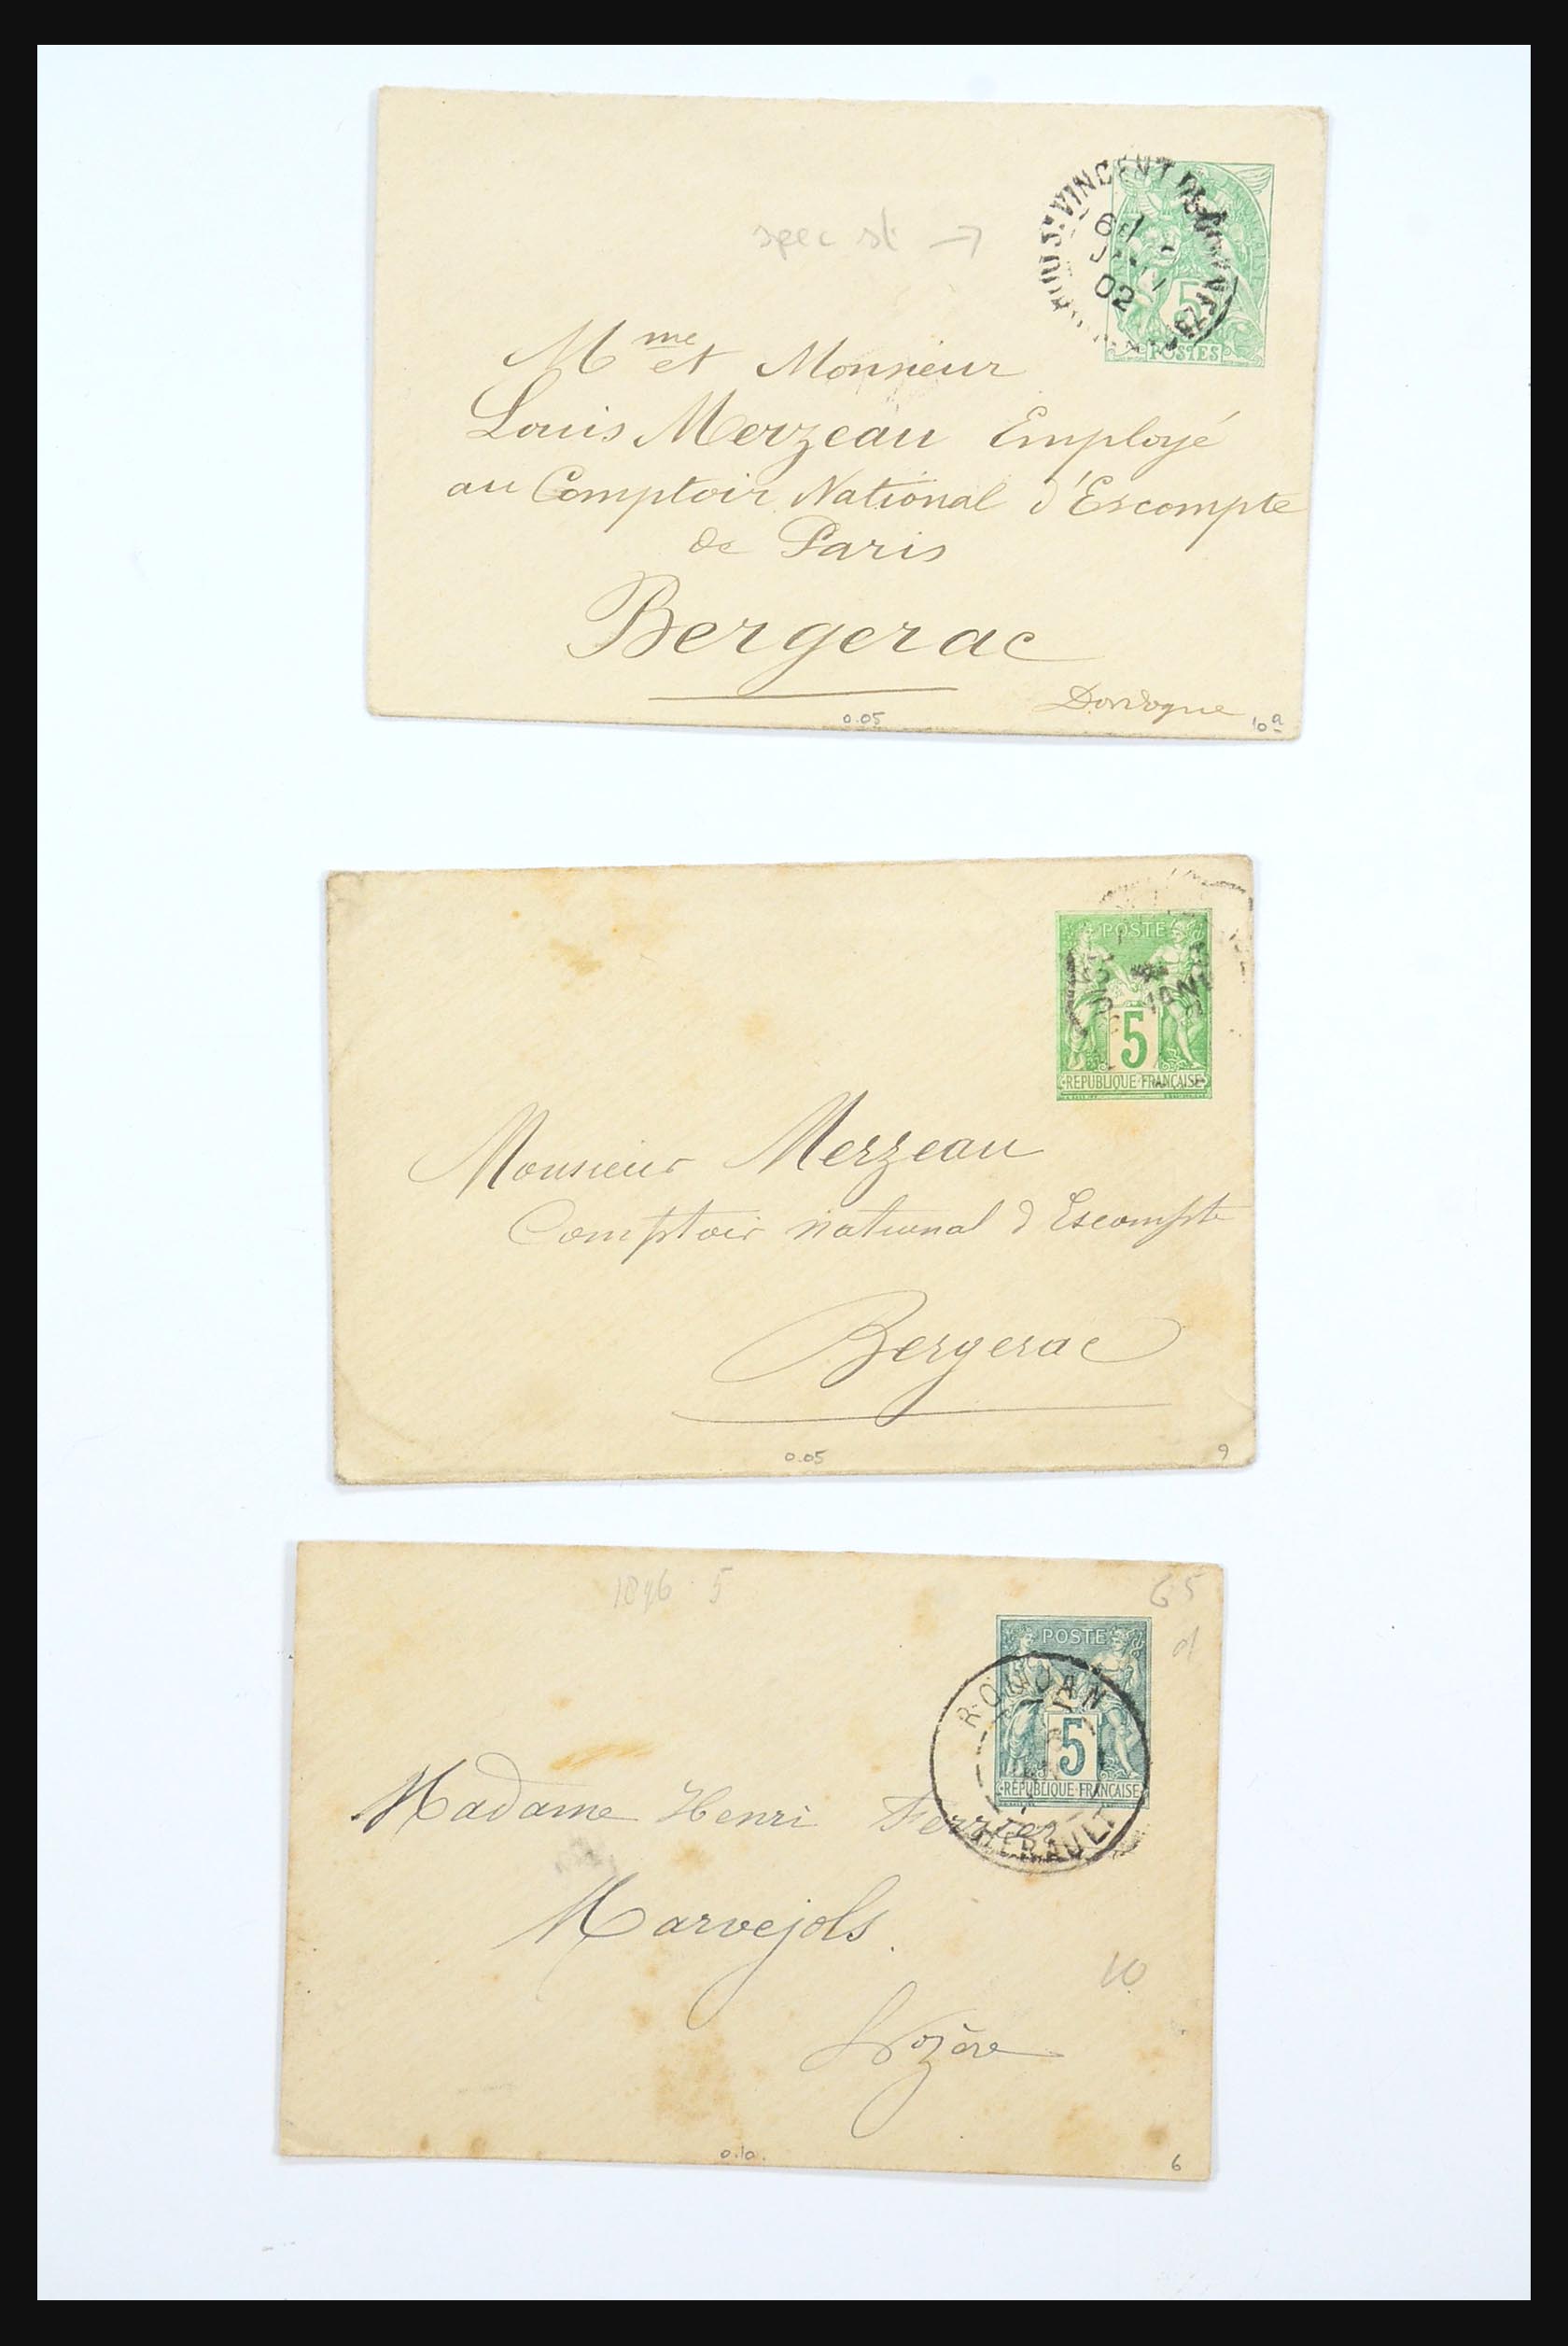 spec st →
ST VINCENT DE
02
5
POSTES
Mme et Monsieur
Louis Merzeau Employé
au Comptoir National d'Escompte
de Paris
Bergerac
Dordogne
0.05
10a
POSTE
JANV
5
REPUBLIQUE FRANÇAISE
Monsieur Merzeau
Comptoir national d Escompte
Bergerac
0.05
9
1896 5
65
POSTE
ROUJAN
5
REPUBLIQUE FRANÇAISE
HERAULT
Madame Henri Ferrier
Marvejols.
10
Lozère
0.10.
6